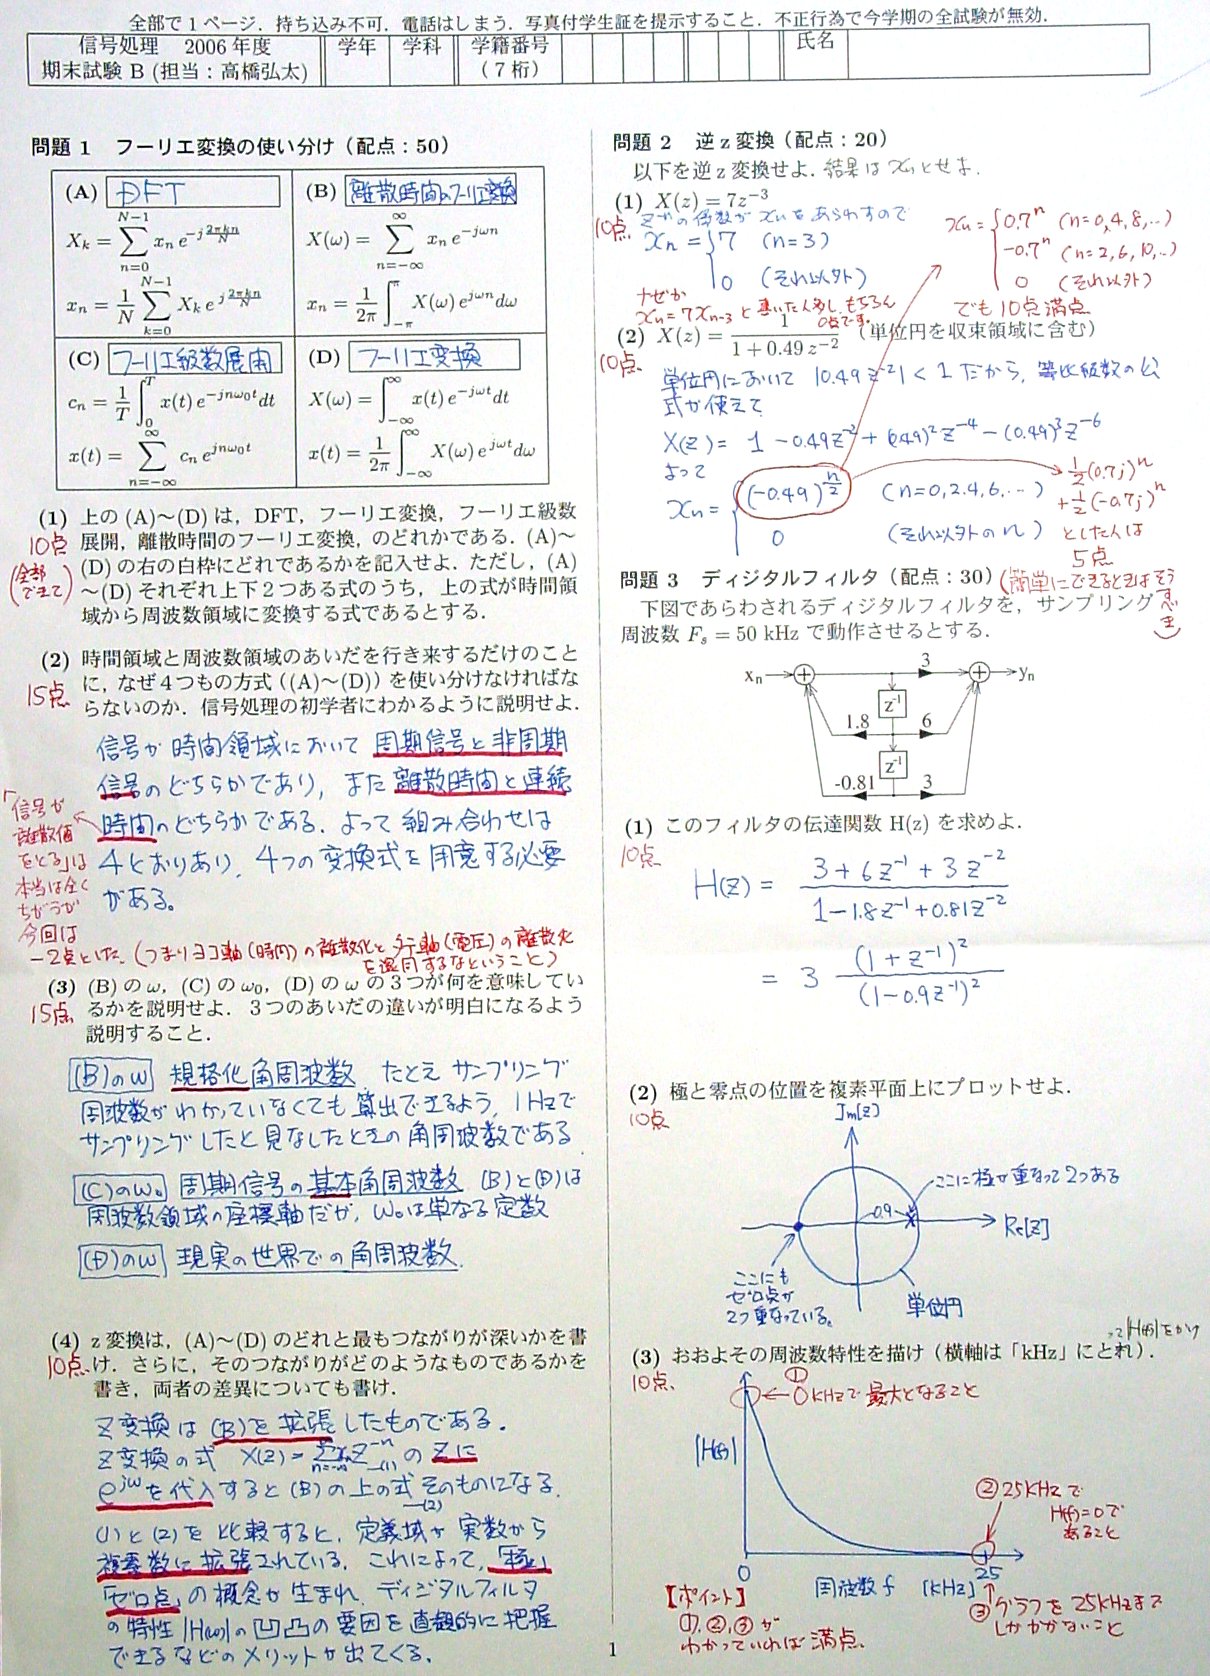 全部で１ページ．持ち込み不可．電話はしまう．写真付学生証を提示すること．不正行為で今学期の全試験が無効．
信号処理　2006 年度
期末試験 B (担当：高橋弘太)
学年
学科
学籍番号
（７桁）
氏名
問題 1　フーリエ変換の使い分け（配点：50）
(A) DFT
X_k = Σ_{n=0}^{N−1} x_n e^{−j 2πkn/N}
x_n = 1/N Σ_{k=0}^{N−1} X_k e^{j 2πkn/N}
(B) 離散時間のフーリエ変換
X(ω) = Σ_{n=−∞}^{∞} x_n e^{−jωn}
x_n = 1/2π ∫_{−π}^{π} X(ω) e^{jωn} dω
(C) フーリエ級数展開
c_n = 1/T ∫_0^T x(t) e^{−jnω₀t} dt
x(t) = Σ_{n=−∞}^{∞} c_n e^{jnω₀t}
(D) フーリエ変換
X(ω) = ∫_{−∞}^{∞} x(t) e^{−jωt} dt
x(t) = 1/2π ∫_{−∞}^{∞} X(ω) e^{jωt} dω
(1) 上の (A)～(D) は，DFT，フーリエ変換，フーリエ級数
展開，離散時間のフーリエ変換，のどれかである．(A)～
(D) の右の白枠にどれであるかを記入せよ．ただし，(A)
～(D) それぞれ上下２つある式のうち，上の式が時間領
域から周波数領域に変換する式であるとする．
10点
(全部
できて)
(2) 時間領域と周波数領域のあいだを行き来するだけのこと
に，なぜ４つもの方式 ((A)～(D)) を使い分けなければな
らないのか．信号処理の初学者にわかるように説明せよ．
15点
信号が時間領域において 周期信号と非周期
信号のどちらかであり，また 離散時間と連続
時間のどちらかである．よって 組み合わせは
4とおりあり，4つの変換式を用意する必要
がある。
「信号が
離散値
をとる」は
本当は全く
ちがうが
今回は
−2点とした．(つまりヨコ軸(時間)の離散化とタテ軸(電圧)の離散化
を混同するなということ)
(3) (B) の ω，(C) の ω₀，(D) の ω の３つが何を意味してい
るかを説明せよ．３つのあいだの違いが明白になるよう
説明すること．
15点
(B)のω 規格化角周波数．たとえ サンプリング
周波数がわかっていなくても算出できるよう，1Hzで
サンプリングしたと見なしたときの角周波数である
(C)のω₀ 周期信号の基本角周波数 (B)と(D)は
周波数領域の座標軸だが，ω₀は単なる定数
(D)のω 現実の世界での角周波数．
(4) z 変換は，(A)～(D) のどれと最もつながりが深いかを書
け．さらに，そのつながりがどのようなものであるかを
書き，両者の差異についても書け．
10点
Z変換は (B)を拡張したものである．
Z変換の式 X(z)=Σ_{n=−∞}^{∞} x_n z^{−n} —(1) の zに
e^{jω}を代入すると(B)の上の式そのものになる．
—(2)
(1)と(2)を比較すると，定義域が実数から
複素数に拡張されている．これによって，「極」
「ゼロ点」の概念が生まれ，ディジタルフィルタ
の特性 |H(ω)|の凹凸の要因を直観的に把握
できるなどのメリットが出てくる．
問題 2　逆 z 変換（配点：20）
以下を逆 z 変換せよ．結果は x_n とせよ．
(1) X(z) = 7z⁻³
10点
z⁻ⁿの係数が x_n をあらわすので
x_n = { 7 (n=3)
0 (それ以外)
なぜか
x_n = 7x_{n−3} と書いた人多し もちろん
0点です．
x_n = { 0.7ⁿ (n=0,4,8,…)
−0.7ⁿ (n=2,6,10,..)
0 (それ以外)
でも10点満点
(2) X(z) = 1 / (1 + 0.49 z⁻²)　(単位円を収束領域に含む)
10点
単位円において |0.49z⁻²| < 1 だから，等比級数の公
式が使えて
X(z) = 1 − 0.49z⁻² + (0.49)²z⁻⁴ − (0.49)³z⁻⁶
よって
x_n = { (−0.49)^{n/2} (n=0,2,4,6,…)
0 (それ以外のn)
½(0.7j)ⁿ
+½(−0.7j)ⁿ
とした人は
5点
(簡単にできるときはそう
すべき)
問題 3　ディジタルフィルタ（配点：30）
下図であらわされるディジタルフィルタを，サンプリング
周波数 F_s = 50 kHz で動作させるとする．
x_n
3
y_n
z⁻¹
1.8
6
z⁻¹
-0.81
3
(1) このフィルタの伝達関数 H(z) を求めよ．
10点
H(z) = (3 + 6z⁻¹ + 3z⁻²) / (1 − 1.8z⁻¹ + 0.81z⁻²)
= 3 (1 + z⁻¹)² / (1 − 0.9z⁻¹)²
(2) 極と零点の位置を複素平面上にプロットせよ．
10点
Im[z]
ここに極が重なって2つある
0.9
Re[z]
ここにも
ゼロ点が
2つ重なっている。
単位円
(3) おおよその周波数特性を描け（横軸は「kHz」にとれ）．
10点
① 0kHzで最大となること
|H(f)|
② 25kHzで
H(f)=0で
あること
0
周波数 f [kHz]
25
③グラフを25kHzまで
しかかかないこと
【ポイント】
①,②,③が
わかっていれば満点．
1